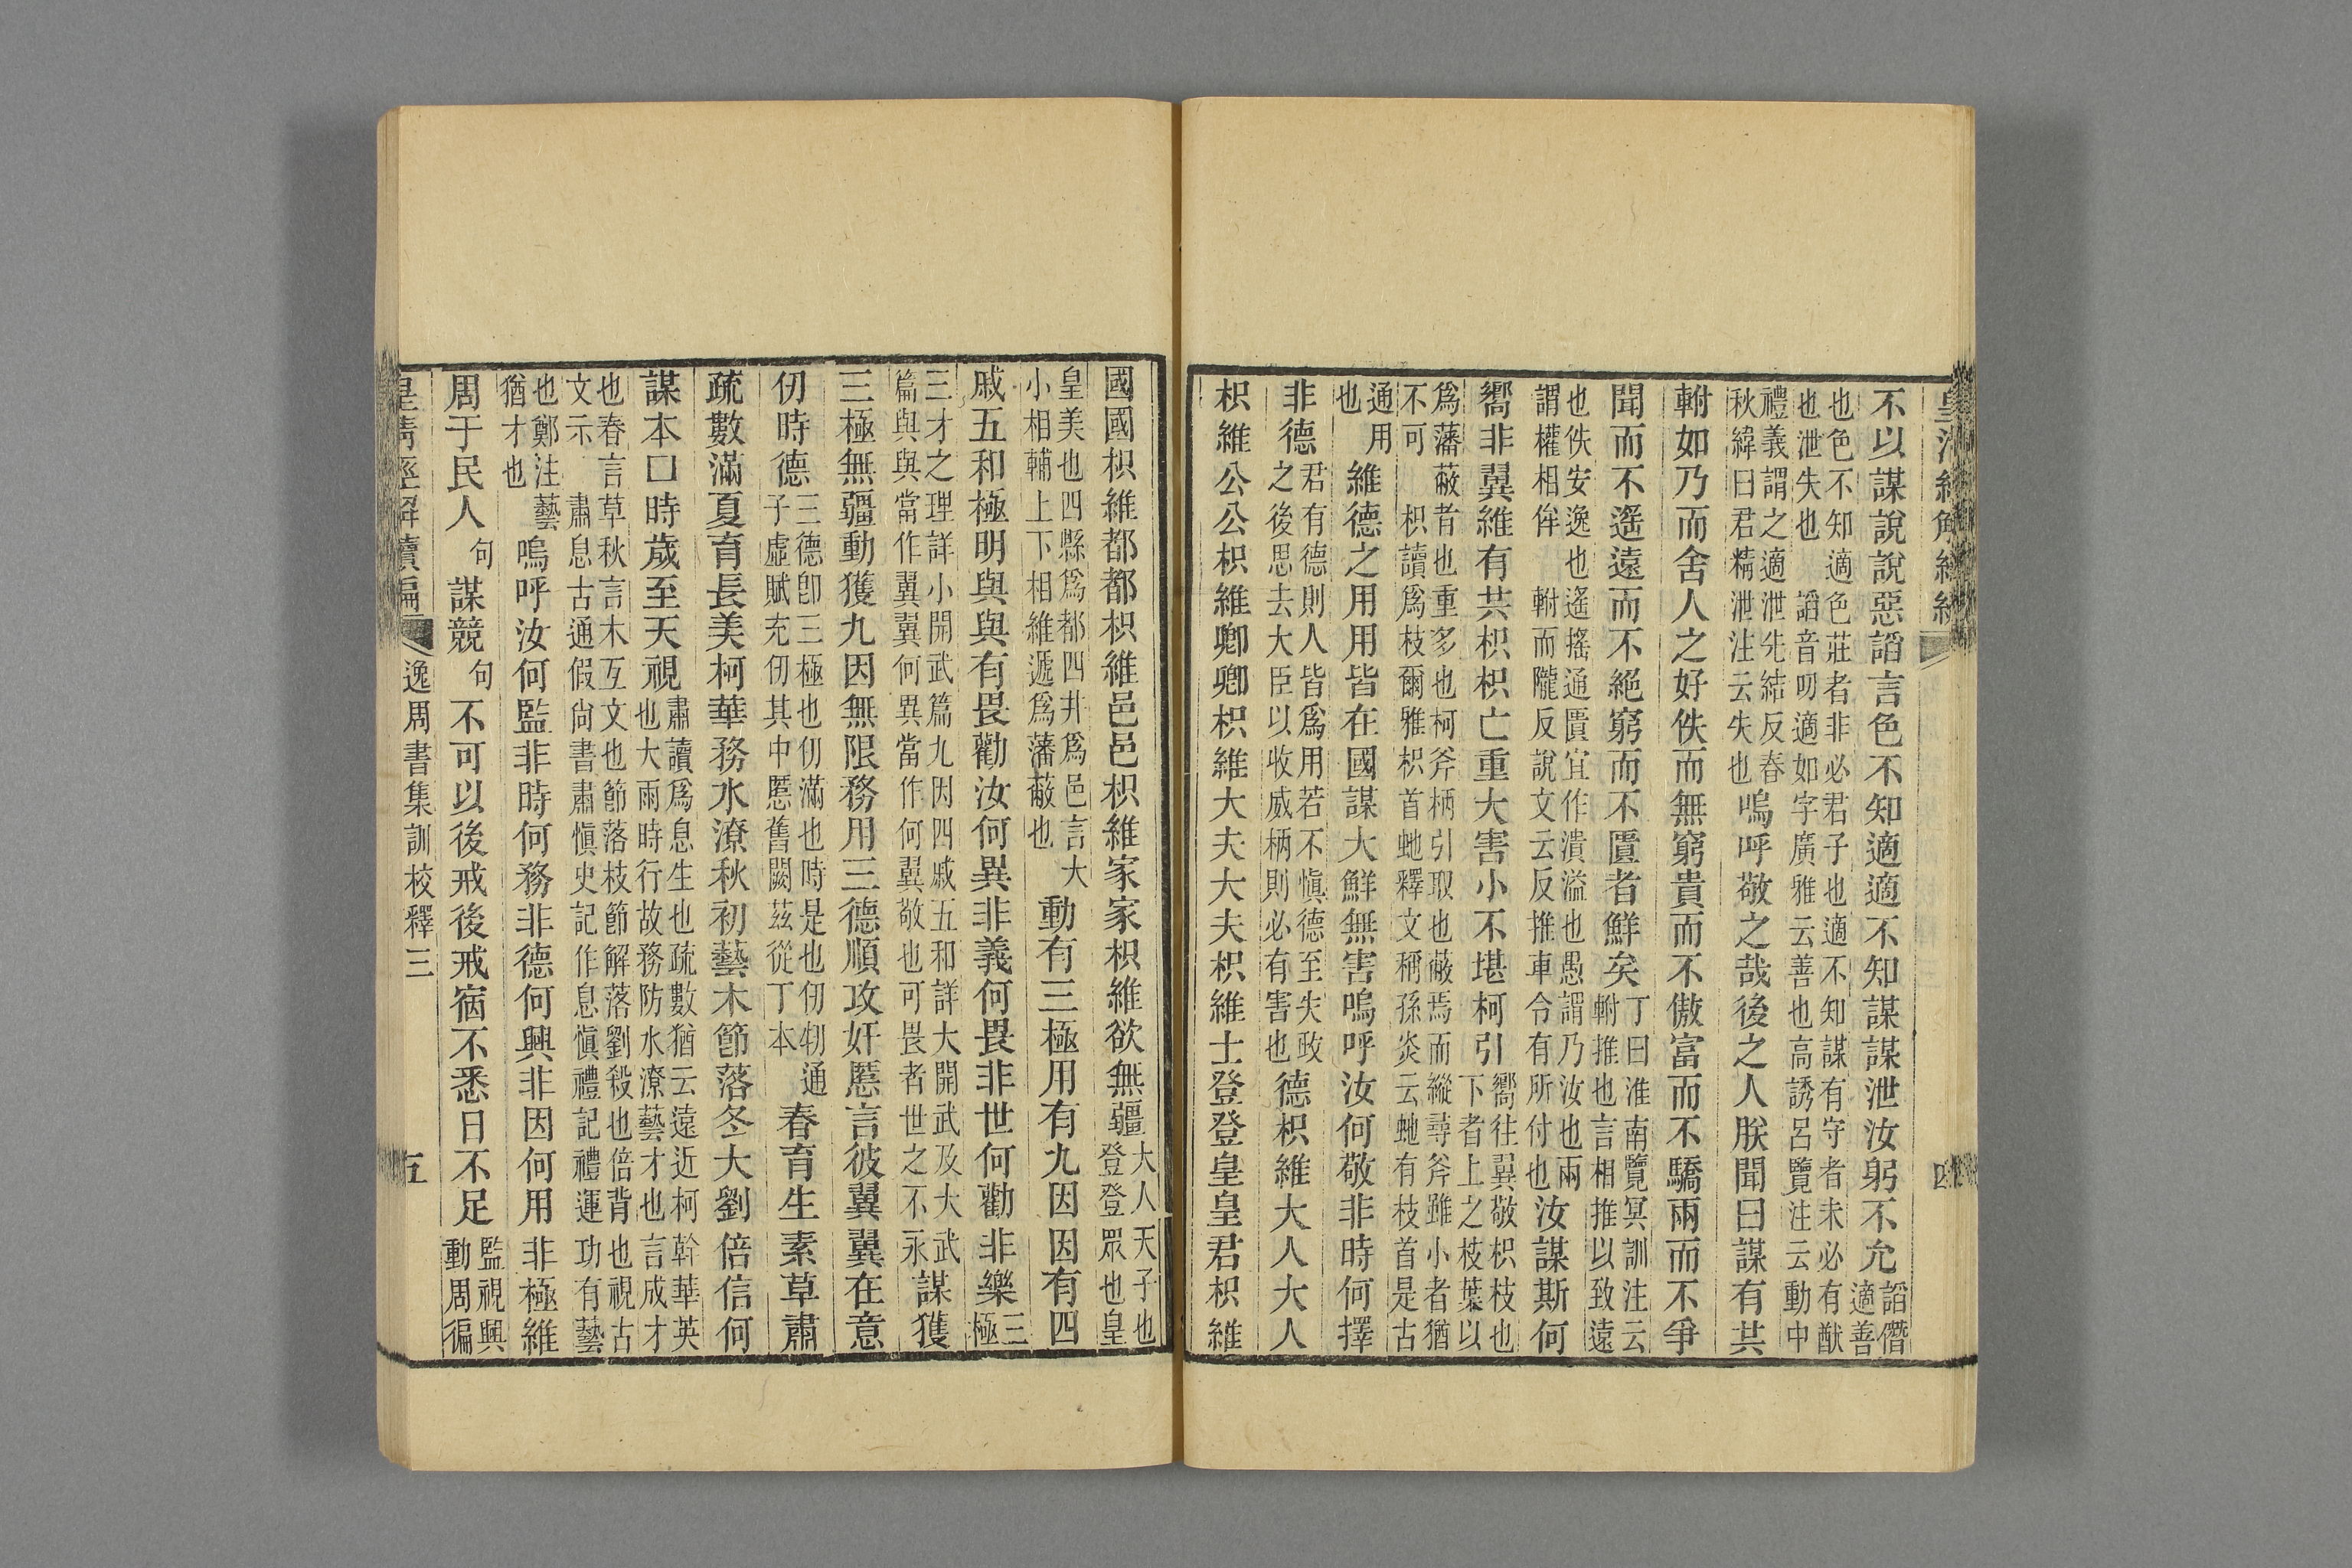 不以謀說說惡謟言色不知適適不知謀謀泄汝躬不允謟僭適善
也色不知適色莊者非必君子也適不知謀有守者未必有猷
也泄失也　謟音叨適如字廣雅云善也高誘呂覽注云動中
禮義謂之適泄先結反春秋緯曰君精泄注云失也嗚呼敬之哉後之人朕聞曰謀有共
軵如乃而舍人之好佚而無窮貴而不傲富而不驕兩而不爭
聞而不遙遠而不絕窮而不匱者鮮矣丁曰淮南覽冥訓注云軵推也言相推以致遠
也佚安逸也遙搖通匱宜作潰溢也愚謂乃汝也兩謂權相侔　軵而隴反說文云反推車令有所付也汝謀斯何
嚮非翼維有共枳枳亡重大害小不堪柯引嚮往翼敬枳枝也下者上之枝葉以
為藩蔽者也重多也柯斧柄引取也蔽焉而縱尋斧雖小者猶
不可　枳讀爲枝爾雅枳首虵釋文稱孫炎云虵有枝首是古
通用也維德之用用皆在國謀大鮮無害嗚呼汝何敬非時何擇
非德君有德則人皆爲用若不愼德至失政之後思去大臣以收威柄則必有害也德枳維大人大人
枳維公公枳維卿卿枳維大夫大夫枳維士登登皇皇君枳維
國國枳維都都枳維邑邑枳維家家枳維欲無疆大人天子也登登眾也皇
皇美也四縣爲都四井爲邑言大小相輔上下相維遞爲藩蔽也動有三極用有九因因有四
戚五和極明與與有畏勸汝何異非義何畏非世何勸非樂三極
三才之理詳小開武篇九因四戚五和詳大開武及大武
篇與與當作翼翼何異當作何翼敬也可畏者世之不永謀獲
三極無疆動獲九因無限務用三德順攻奸慝言彼翼翼在意
仞時德三德卽三極也仞滿也時是也仞牣通子虛賦充仞其中慝舊闕茲從丁本春育生素草肅
疏數滿夏育長美柯華務水潦秋初藝木節落冬大劉倍信何
謀本囗時歲至天視肅讀爲息生也疏數猶云遠近柯幹華英也大雨時行故務防水潦藝才也言成才
也春言草秋言木互文也節落枝節解落劉殺也倍背也視古
文示　肅息古通假尙書肅愼史記作息愼禮記禮運功有藝
也鄭注藝猶才也嗚呼汝何監非時何務非德何興非因何用非極維
周于民人句謀競句不可以後戒後戒宿不悉日不足監視興動周徧
逸周書集訓校釋三
五
四